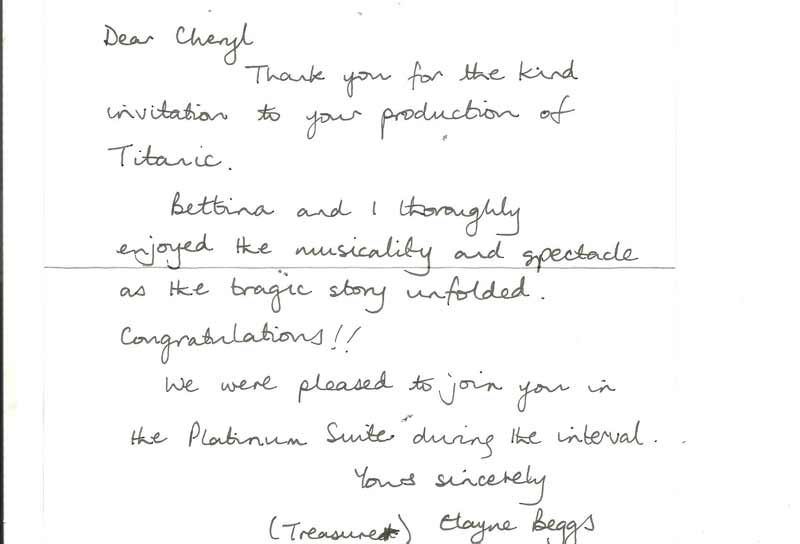 Dear Cheryl
Thank you for the kind
invitation to your production of
Titanic.
Bettina and I thoroughly
enjoyed the musicality and spectacle
as the tragic story unfolded.
Congratulations!!
We were pleased to join you in
the Platinum Suite during the interval.
Yours sincerely
(Treasurer) Elayne Beggs